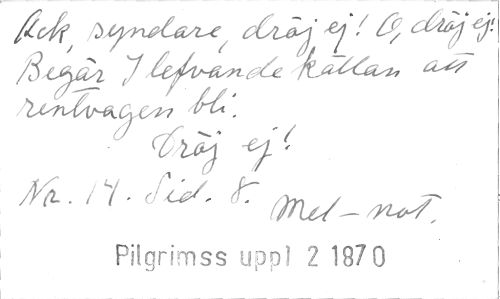 Ack, syndare, dröj ej! O, dröj ej!
Begär I lefvande källan att
rentvagen bli.
Dröj ej!
Nr. 14. Sid. 8. Mel-not.
Pilgrimss uppl 2 1870